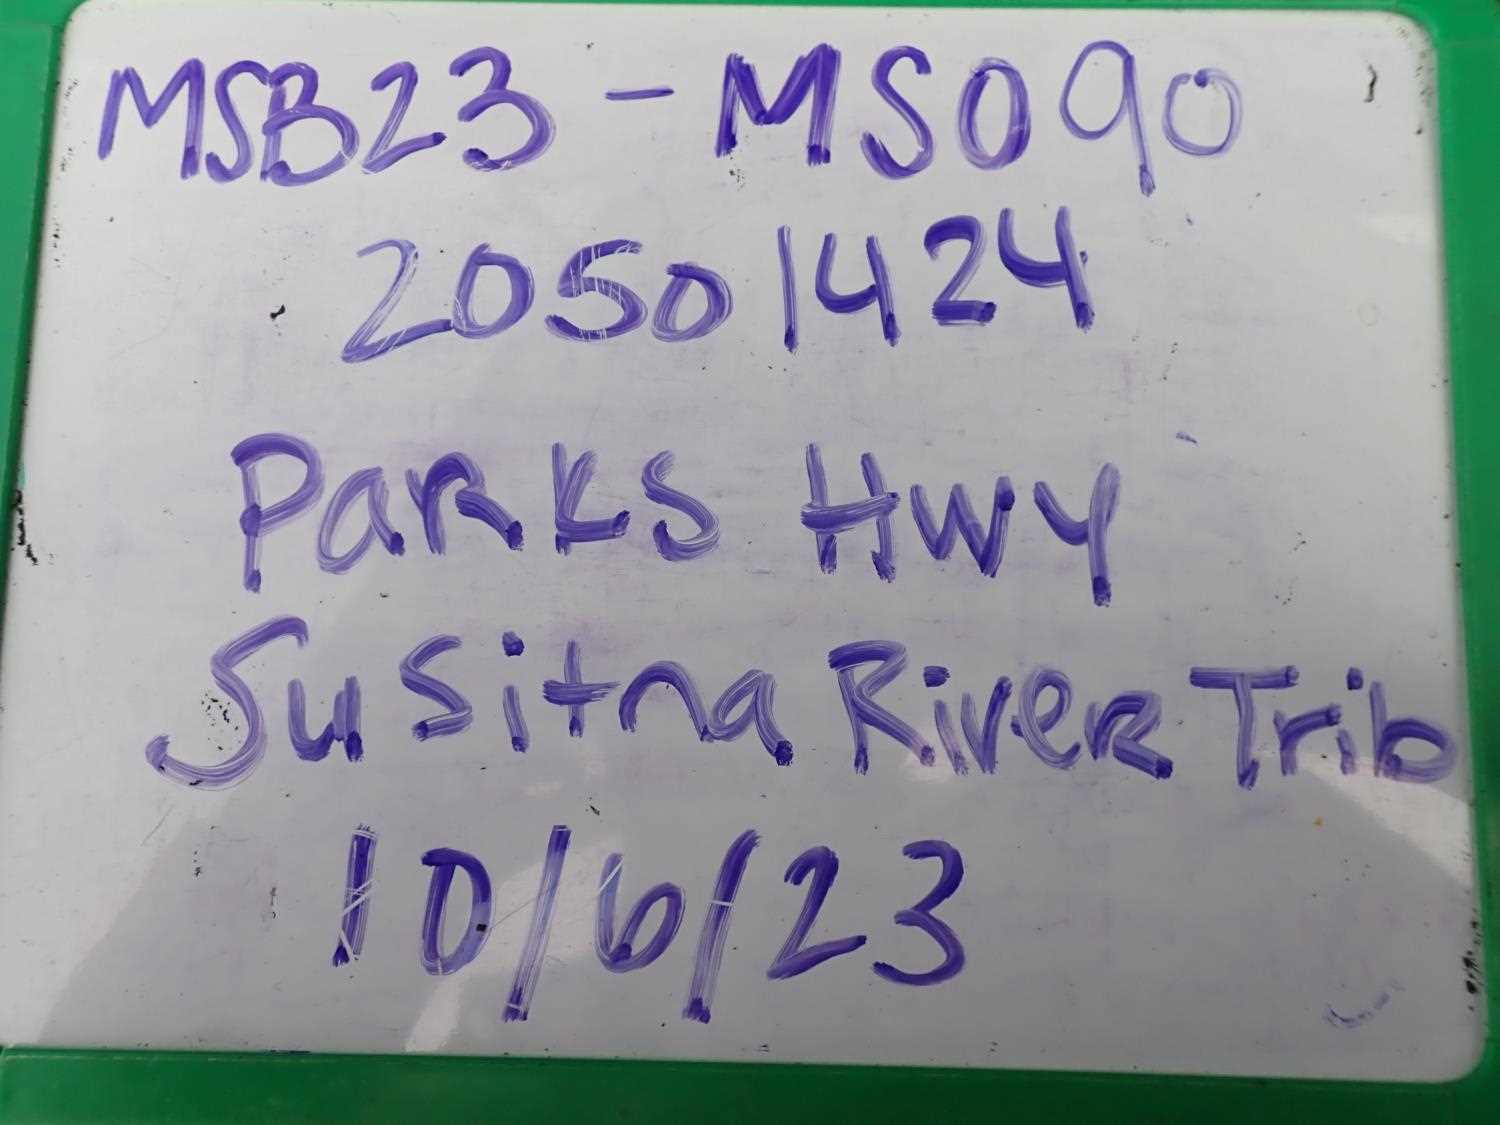 MSB23-MS090
20501424
Parks Hwy
Susitna River Trib
10/6/23